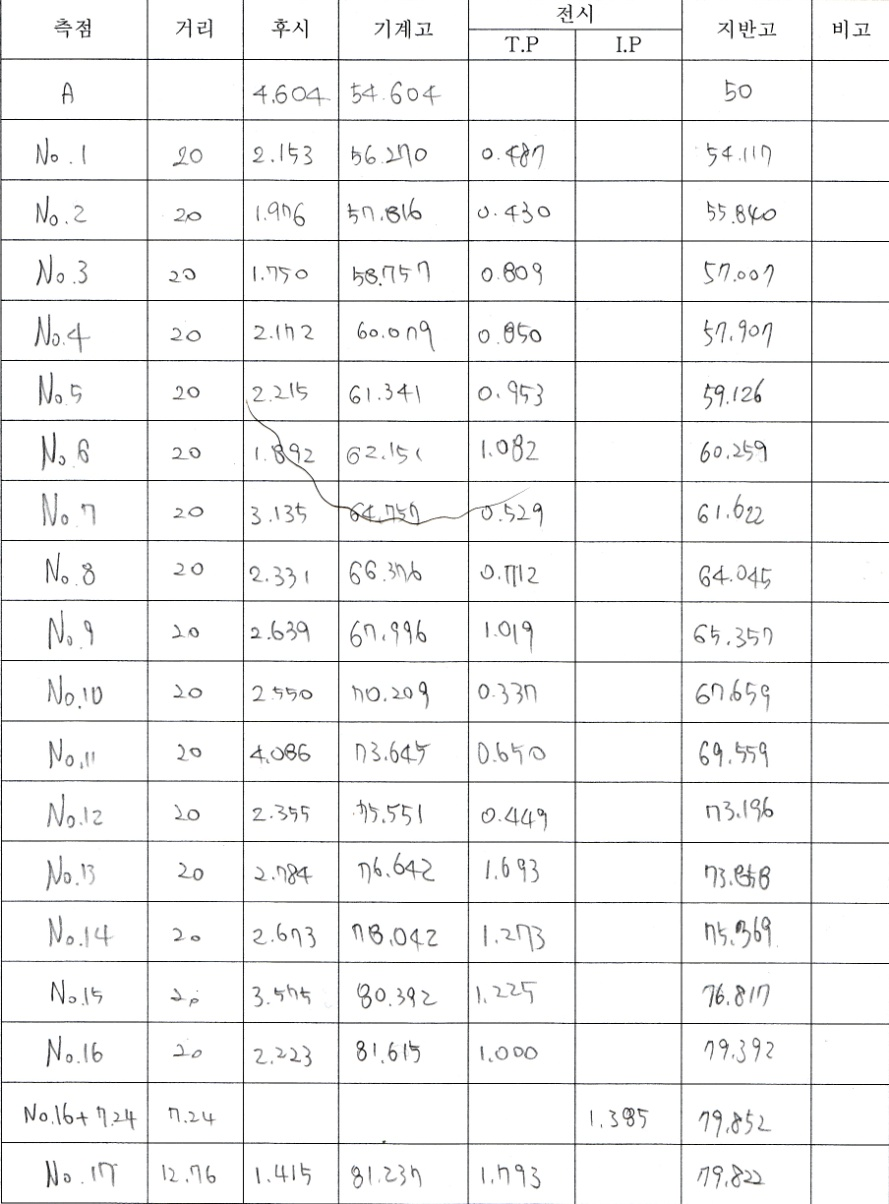 측점 거리 후시 기계고 전시 지반고 비고
T.P I.P
A 4.604 54.604 50
No.1 20 2.153 56.270 0.487 54.117
No.2 20 1.976 57.816 0.430 55.840
No.3 20 1.750 58.757 0.809 57.007
No.4 20 2.172 60.079 0.850 57.907
No.5 20 2.215 61.341 0.953 59.126
No.6 20 1.892 62.151 1.082 60.259
No.7 20 3.135 64.757 0.529 61.622
No.8 20 2.331 66.376 0.712 64.045
No.9 20 2.639 67.996 1.019 65.357
No.10 20 2.550 70.209 0.337 67.659
No.11 20 4.086 73.645 0.650 69.559
No.12 20 2.355 75.551 0.449 73.196
No.13 20 2.784 76.642 1.693 73.858
No.14 20 2.673 78.042 1.273 75.369
No.15 20 3.575 80.392 1.225 76.817
No.16 20 2.223 81.615 1.000 79.392
No.16+7.24 7.24 1.385 79.852
No.17 12.76 1.415 81.237 1.793 79.822